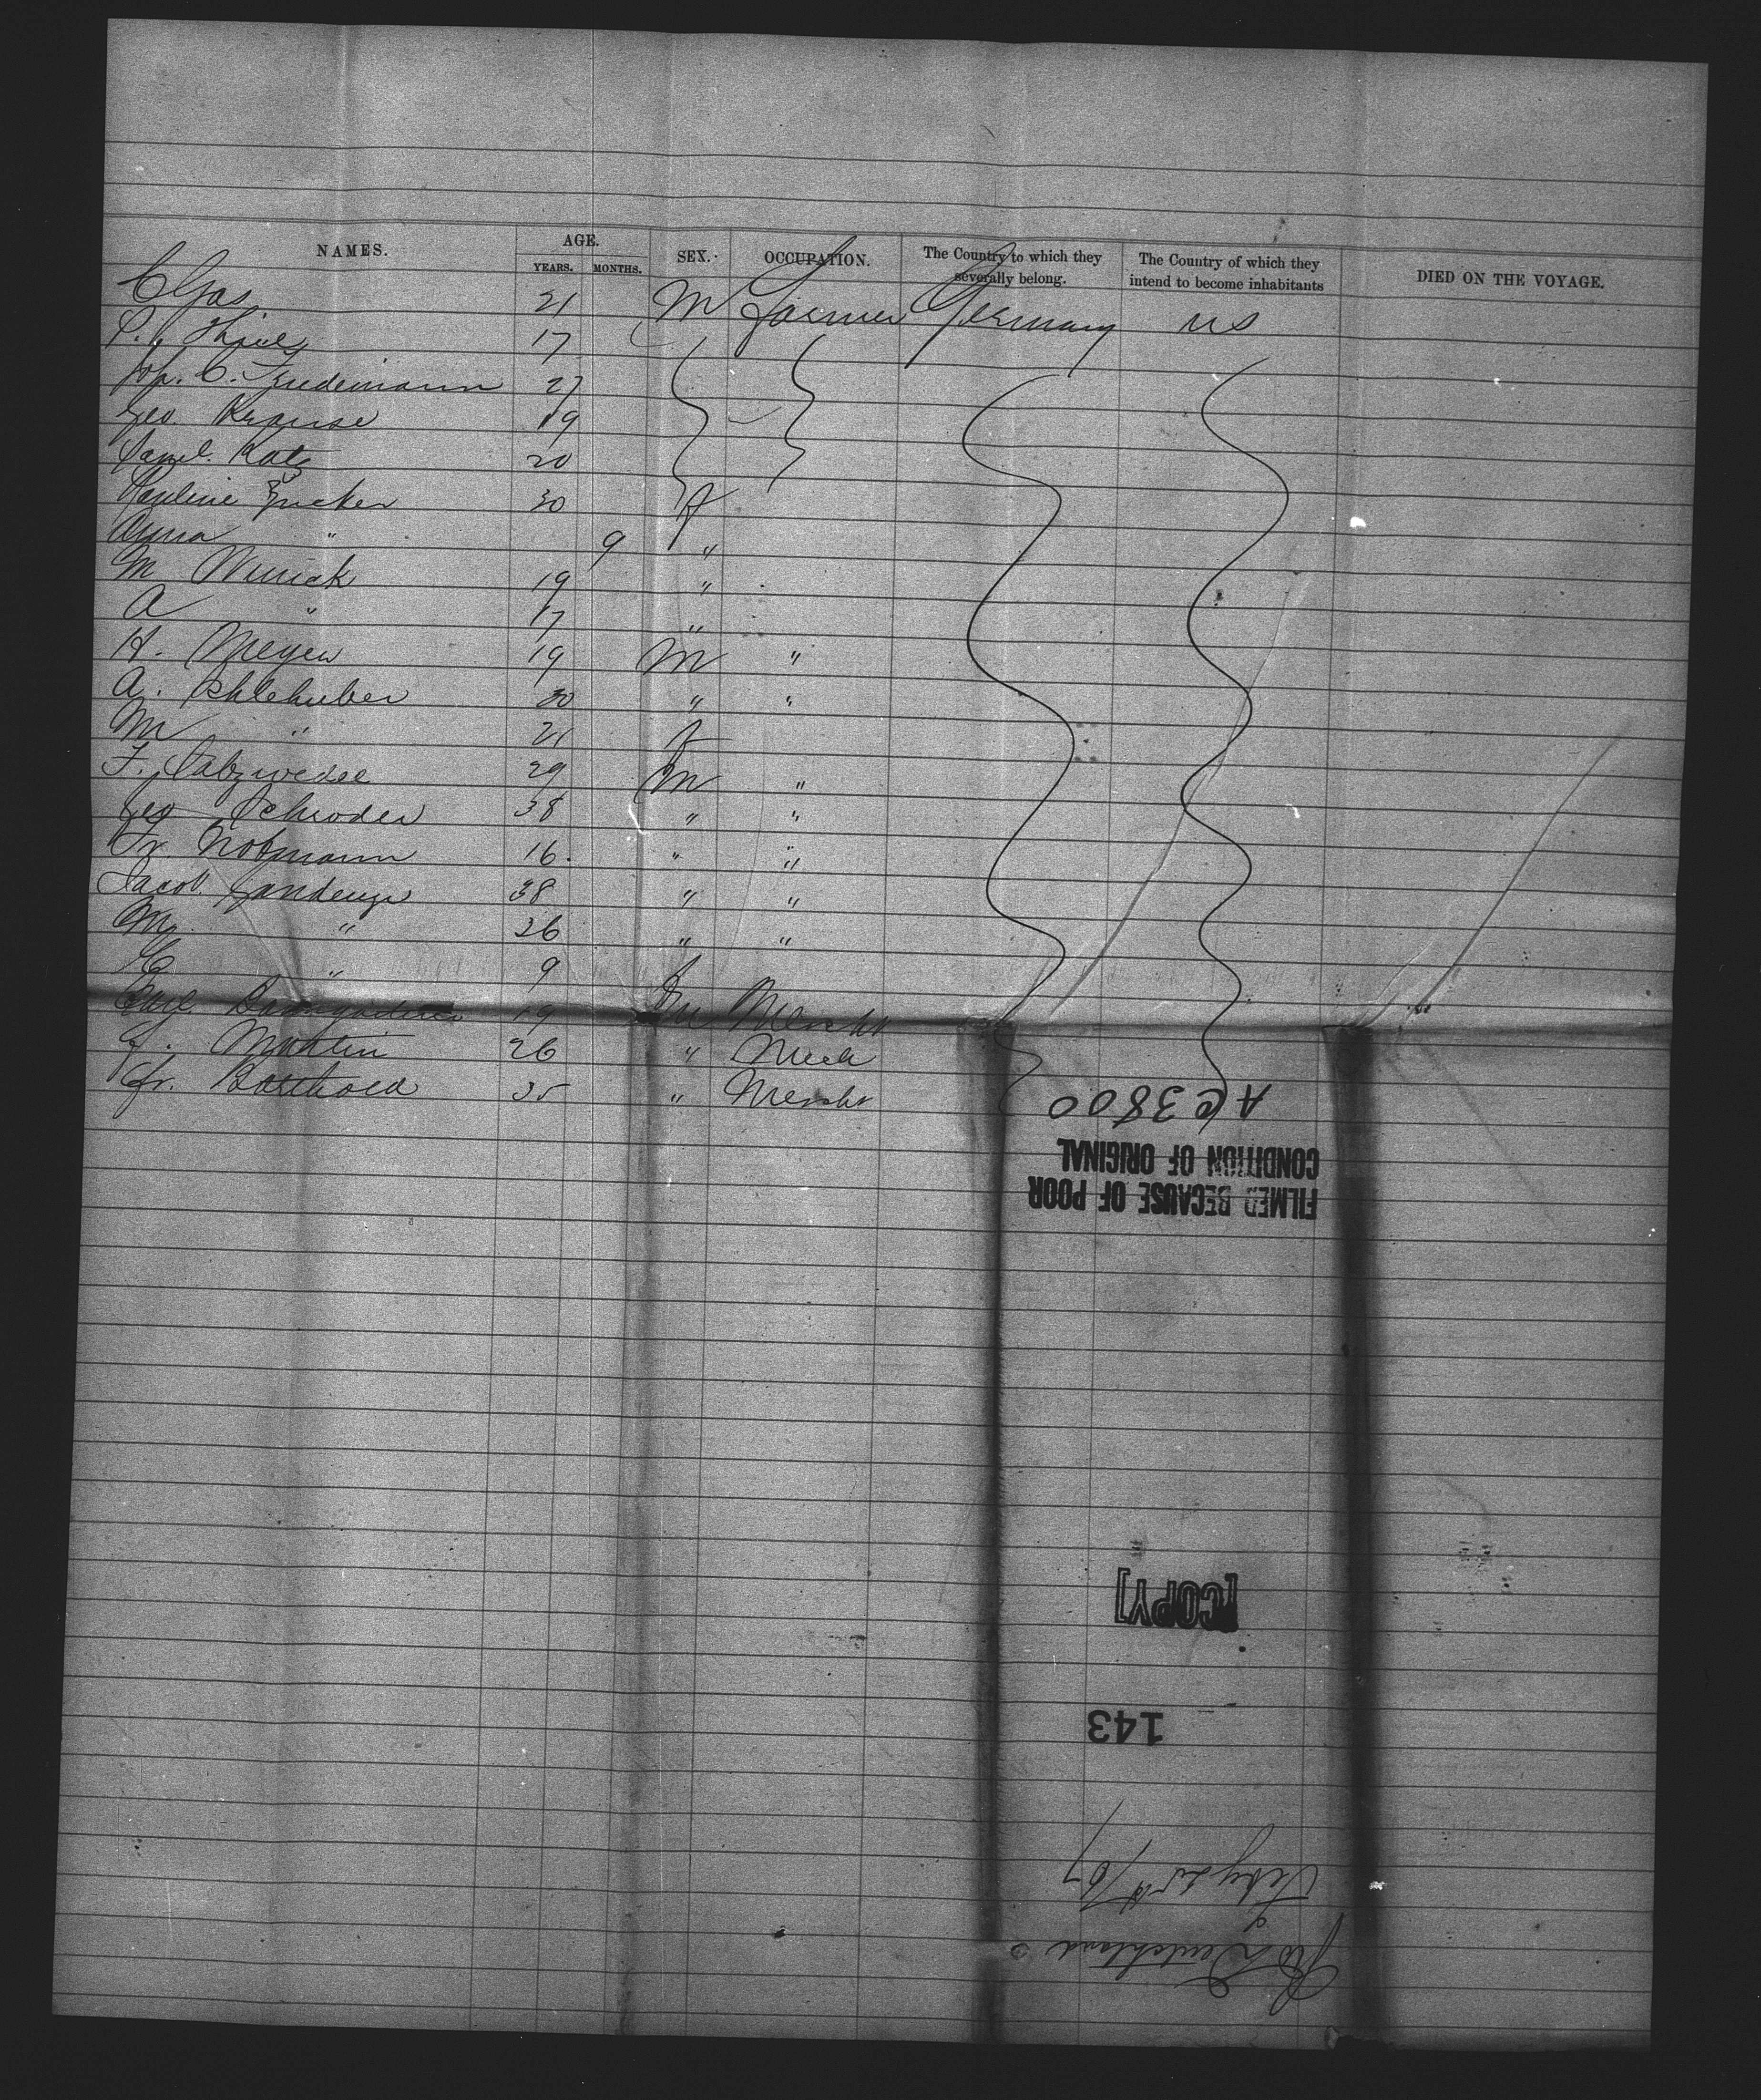 NAMES. AGE. SEX. OCCUPATION. The Country to which they severally belong. The Country of which they intend to become inhabitants DIED ON THE VOYAGE.
YEARS. MONTHS.
C 21 M Farmer Germany US
P. Thiel 17
Jos. C. Friedemann 27
Geo. Krause 19
Saml. Katz 20
Pauline Zucker 30 f
Anna " 9 "
M 19 "
A " 17 "
H. Meyer 19 M "
A. Schlehuber 30 " "
M " 21 f
F. Salzwedel 29 M "
Geo Schroder 38 " "
Fr. 16 " "
Jacob 38 " "
M " 36 " "
C " 9 f
Carl Baumgartner 19 M Mercht
J. Martin 26 " Mech
Fr. Barthold 35 " Mercht
AC 3800
FILMED BECAUSE OF POOR
CONDITION OF ORIGINAL
[COPY]
143
Deutschland